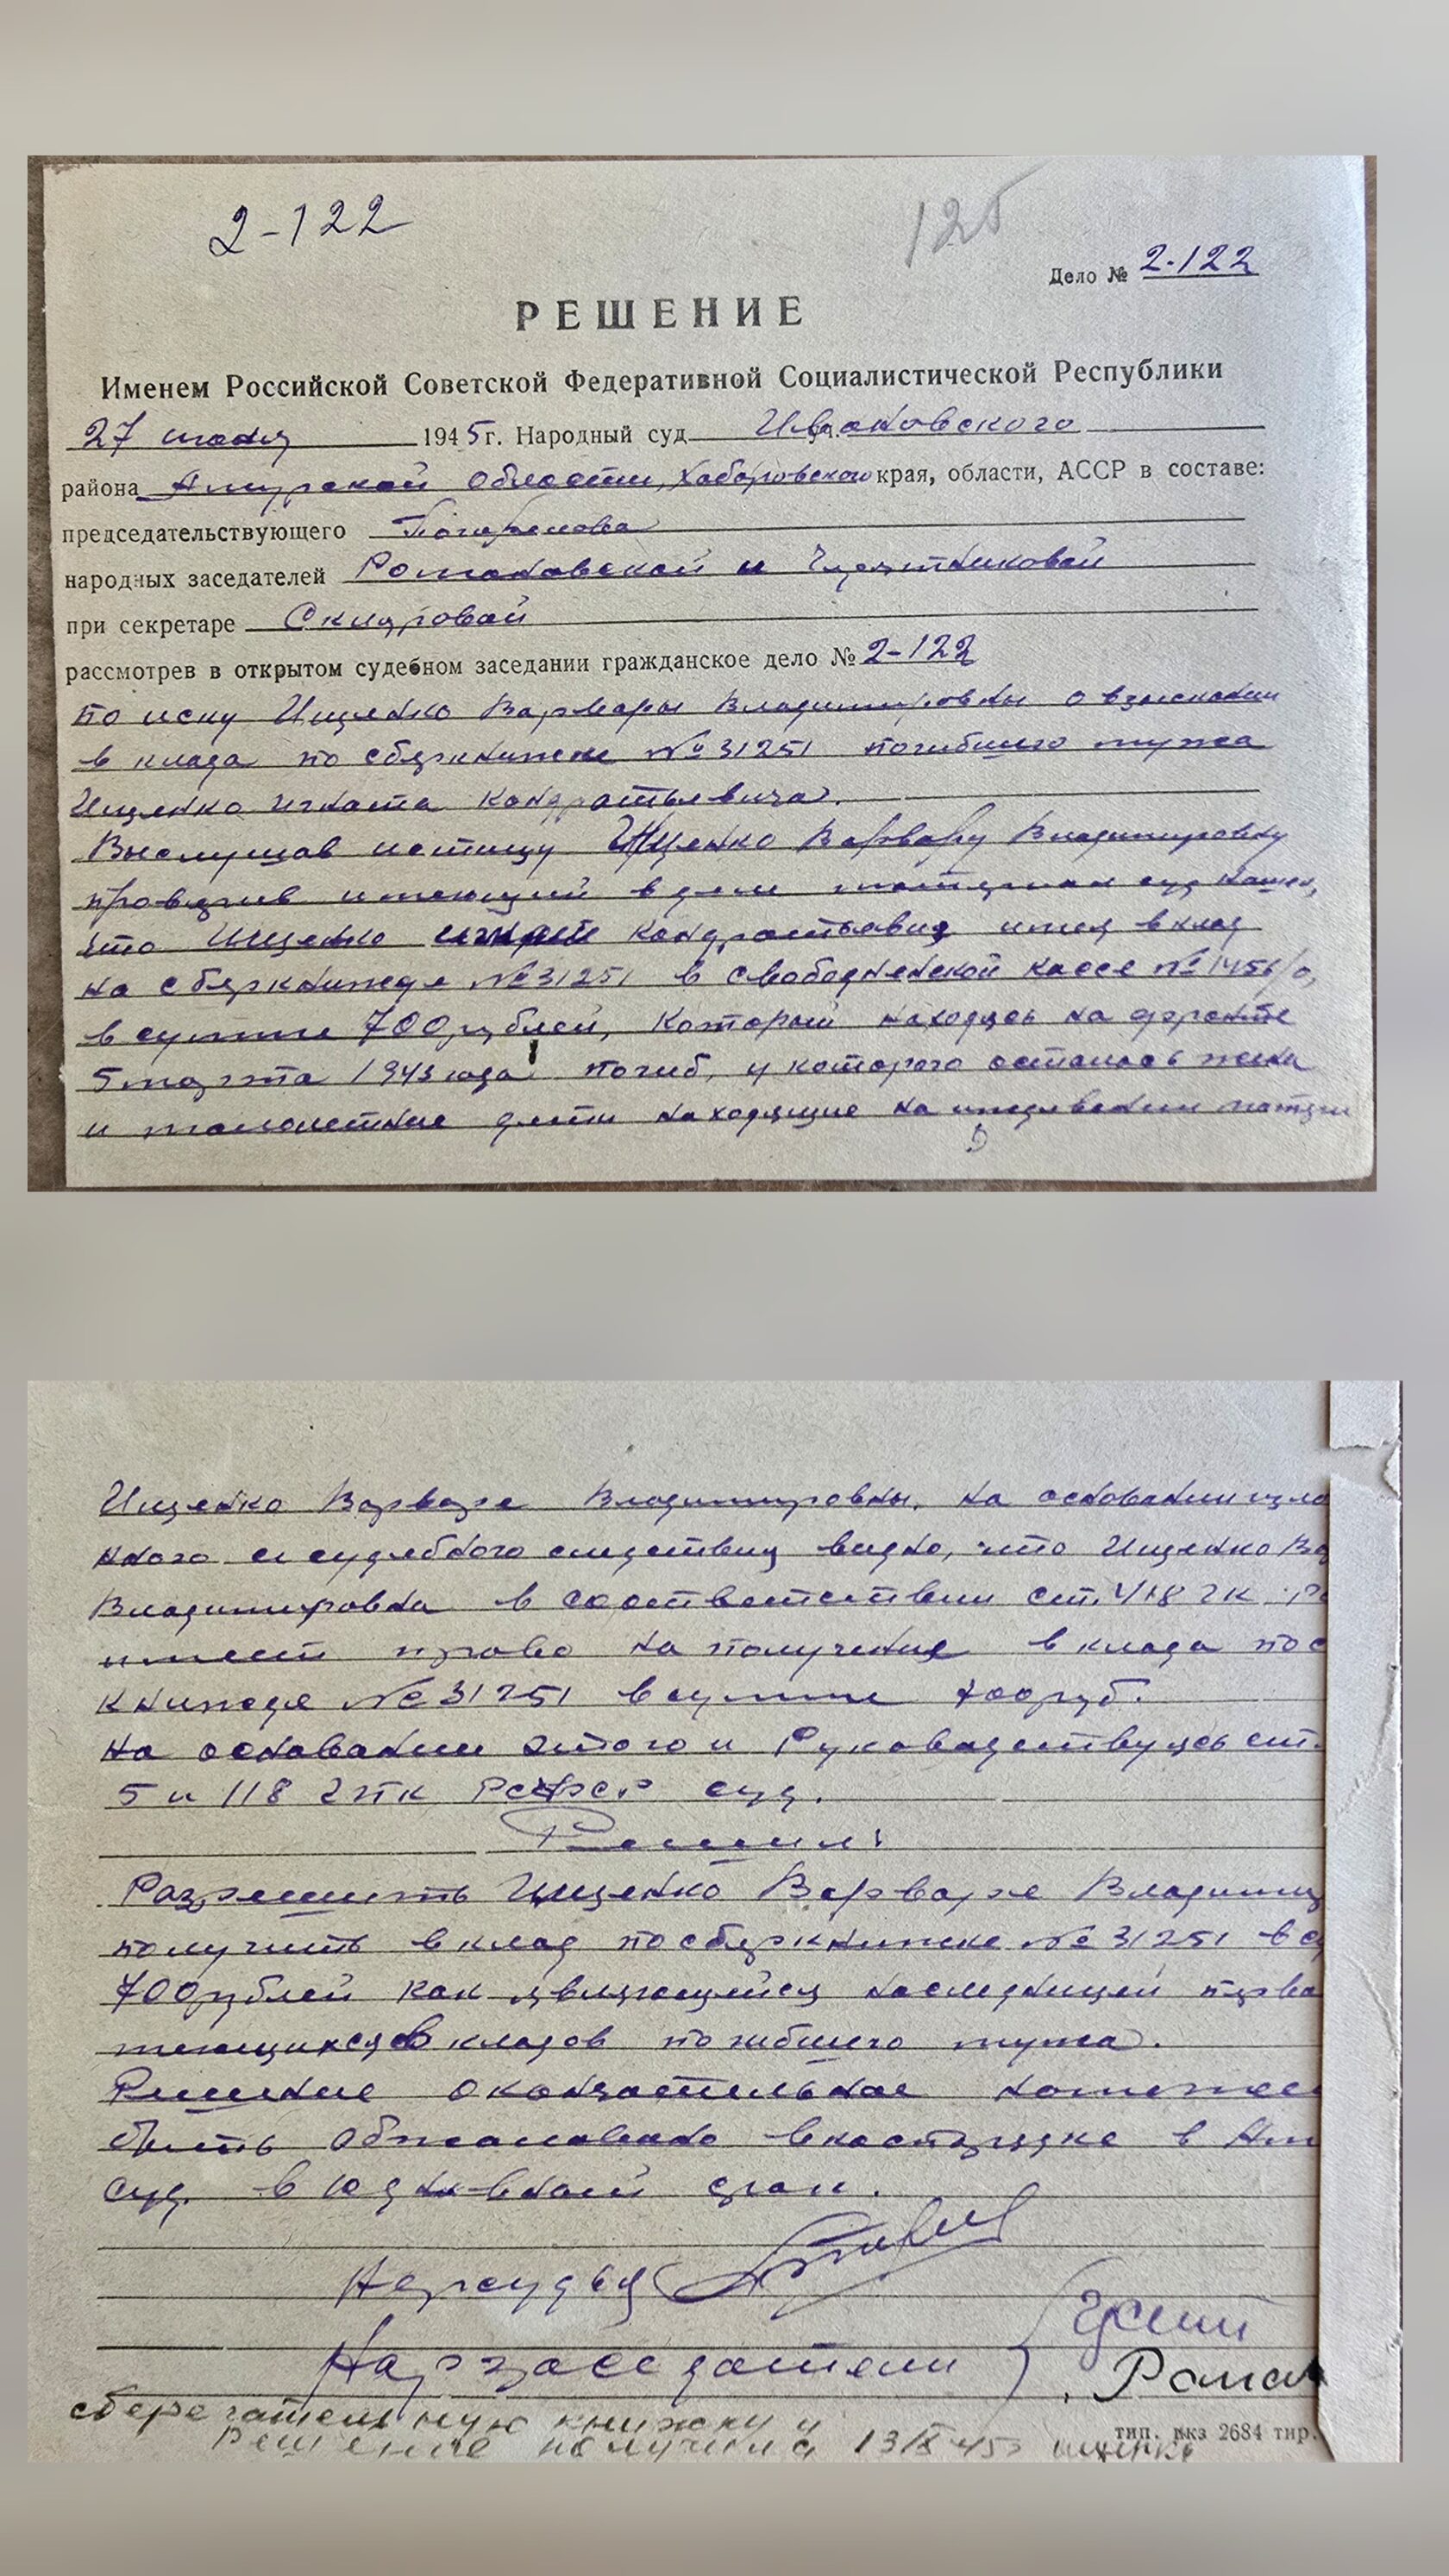 2-122
125
Дело № 2-122
РЕШЕНИЕ
Именем Российской Советской Федеративной Социалистической Республики
27 июля 1945 г. Народный суд Ивановского
района Амурской области, Хабаровского края, области, АССР в составе:
председательствующего
народных заседателей Романовской и
при секретаре
рассмотрев в открытом судебном заседании гражданское дело № 2-122
по иску Ищенко Варвары Владимировны о взыскании
вклада по сберкнижке № 31251 погибшего мужа
Ищенко Игната Кондратьевича.
Выслушав истицу Ищенко Варвару Владимировну
проверив имеющий в деле материал суд нашел,
что Ищенко Игнат Кондратьевич имея вклад
на сберкнижде № 31251 в Свободненской кассе № 1456/0,
в сумме 700 рублей, который находясь на фронте
5 марта 1943 года погиб, у которого осталось жена
и малолетние дети находящие на иждевении
Ищенко Варваре Владимировны. На основании изло
нного и судебного следствия видно, что Ищенко Ва
Владимировна в соответствии ст. 418 ГК Р
имеет право на получение вклада по с
книжде № 31251 в сумме 700 руб.
На основании этого и Руководствуясь ст.
5 и 118 ГПК РСФСР суд.
Решил:
Разрешить Ищенко Варваре Владими
получить вклад по сберкнижке № 31251 в с
700 рублей как являющейся наследницей
вкладов погибшего мужа.
Решение окончательное но может
быть обжаловано в каспорядке в Ам
суд. в 10 дневной срок.
Нарсудья
Нарзаседатели
Роман
сберегательную книжку и
Решение получила 13/X 45 Ищенко
тип. вкз 2684 тир.